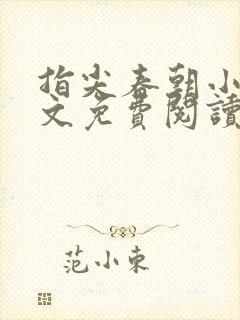 指尖春朝小
文免費閱讀
范小東